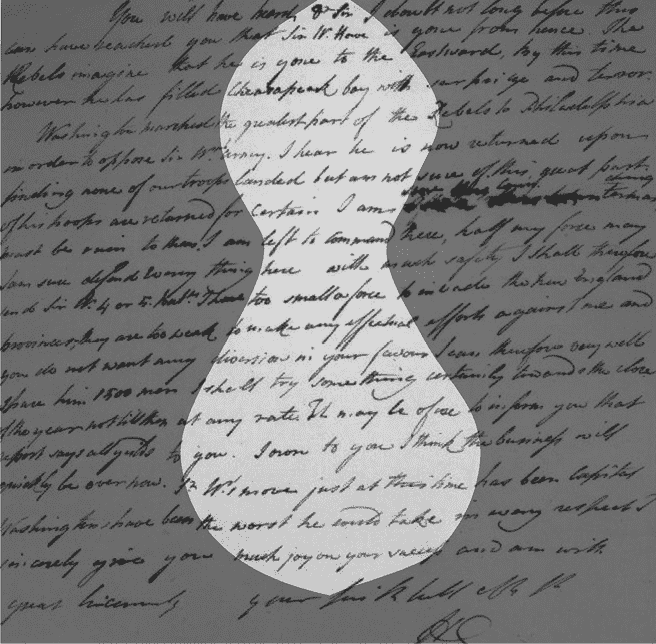 You will have heard, Dr Sir I doubt not long before this
can have reached you that Sir W. Howe is gone from hence. The
Rebels imagine that he is gone to the Eastward, by this time
however he has filled Chesapeak bay with surprize and terror.
Washington marched the greatest part of the Rebels to Philadelphia
in order to oppose Sir Wms army. I hear he is now returned upon
finding none of our troops landed but am not sure of this, great part
of his troops are returned for certain I am sure this
must be ruin to them. I am left to command here, half my force may
I am sure defend every thing here with much safety I shall therefore
send Sir W. 4 or 5 Batns. I have too small a force to invade the New England
provinces, they are too weak to make any effectual efforts against me and
you do not want any diversion in your favour I can therefore very well
spare him 1500 men I shall try something certainly towards the close
of the year not till then at any rate. It may be of use to inform you that
report says all yields to you. I own to you I think the business will
quickly be over now. Sr W's move just at this time has been capital
Washingtons have been the worst he could take in every respect I
sincerely give you much joy on your success and am with
great Sincerity your
HC